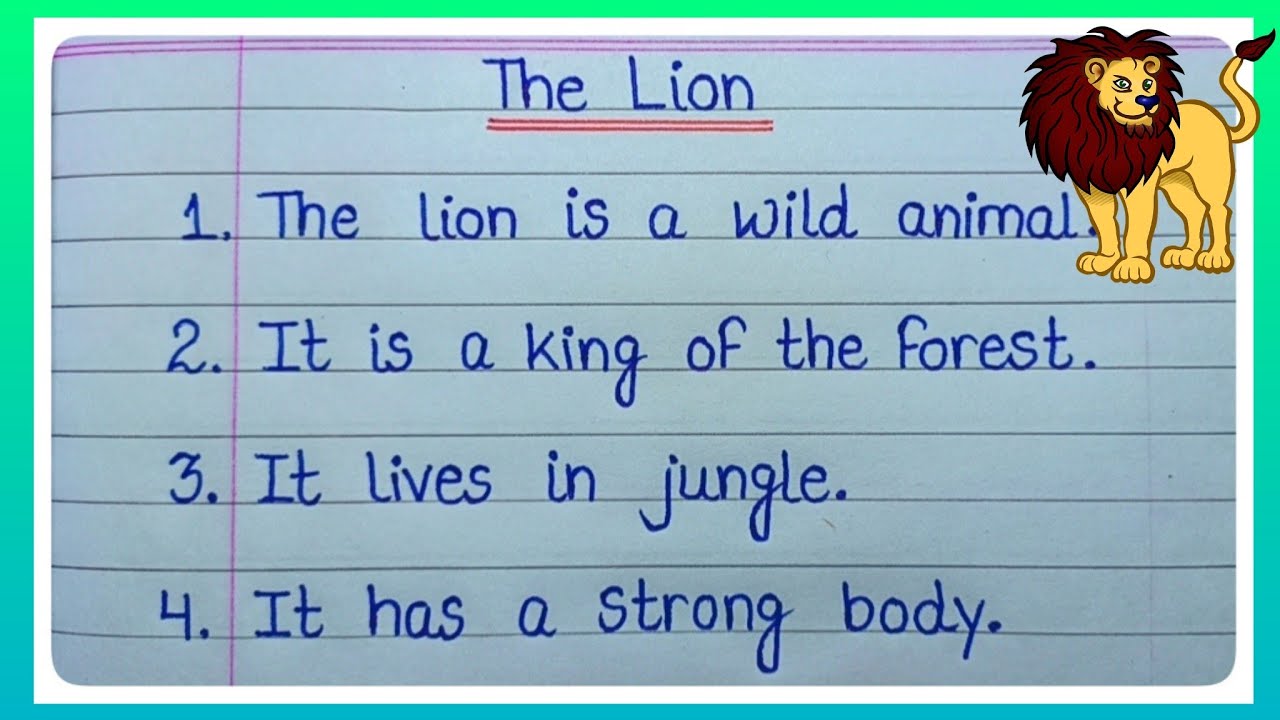 The Lion
1. The lion is a wild animal.
2. It is a king of the forest.
3. It lives in jungle.
4. It has a strong body.